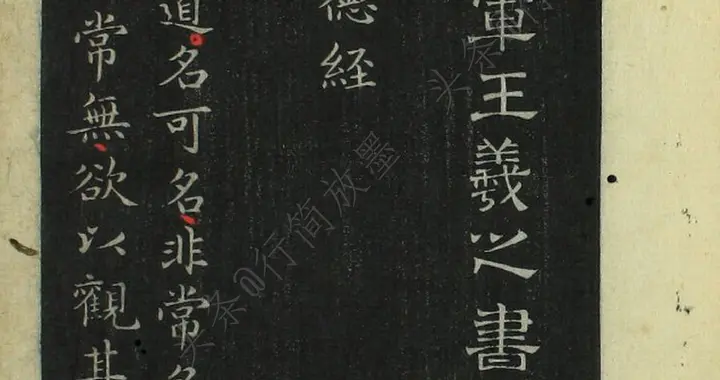 軍王羲之書
德経
道名可名非常名
常無欲以觀其
头条@行简放墨